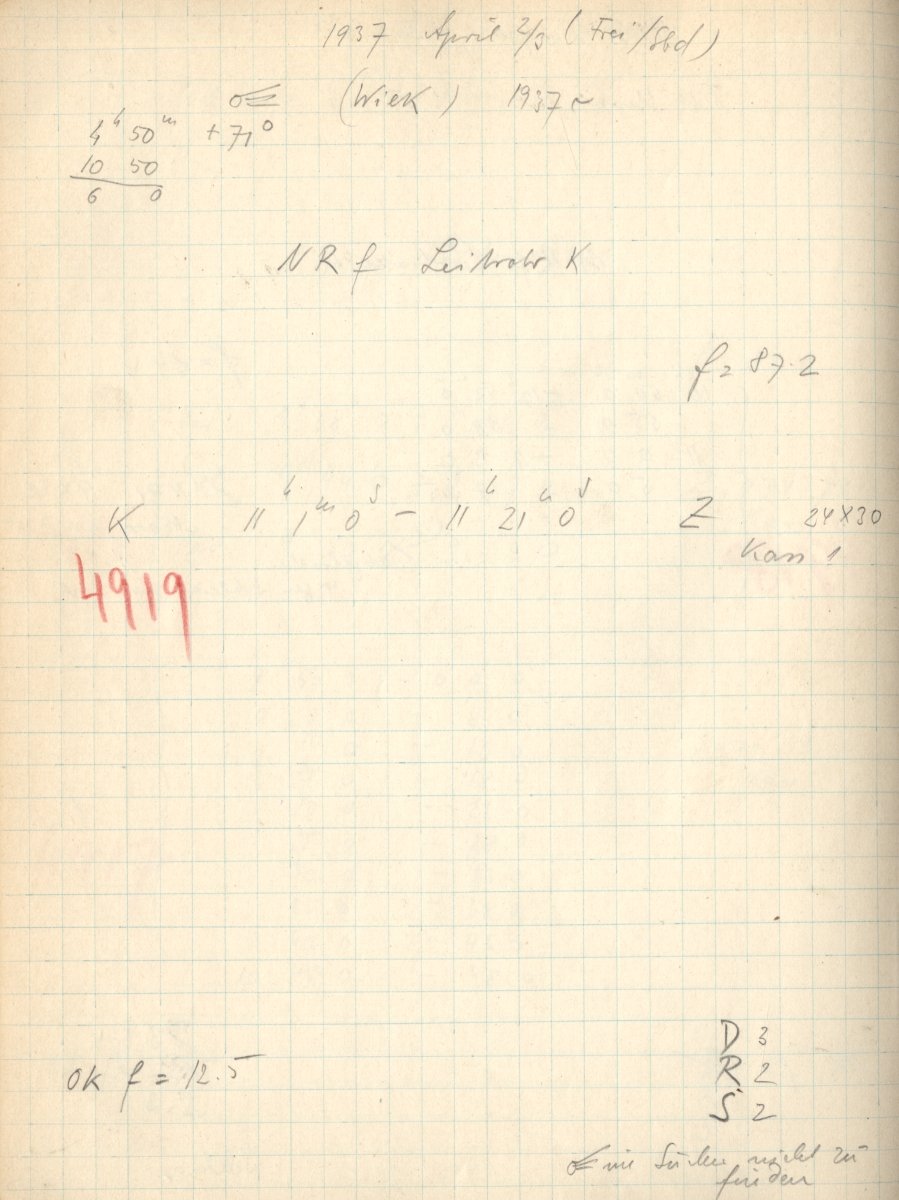 1937 April 2/3 (Frei/Sbd)
☄ (Wilk) 1937 ~
4ʰ 50ᵐ +71⁰
10 50
6 0
NRf Leitrohr K
f = 87.2
K 11ʰ 1ᵐ 0ˢ – 11ʰ 21ᵐ 0ˢ Z 24X30
Kass 1
4919
OK f = 12.5
D 3
R 2
S 2
☄ im Sucher nicht zu
finden